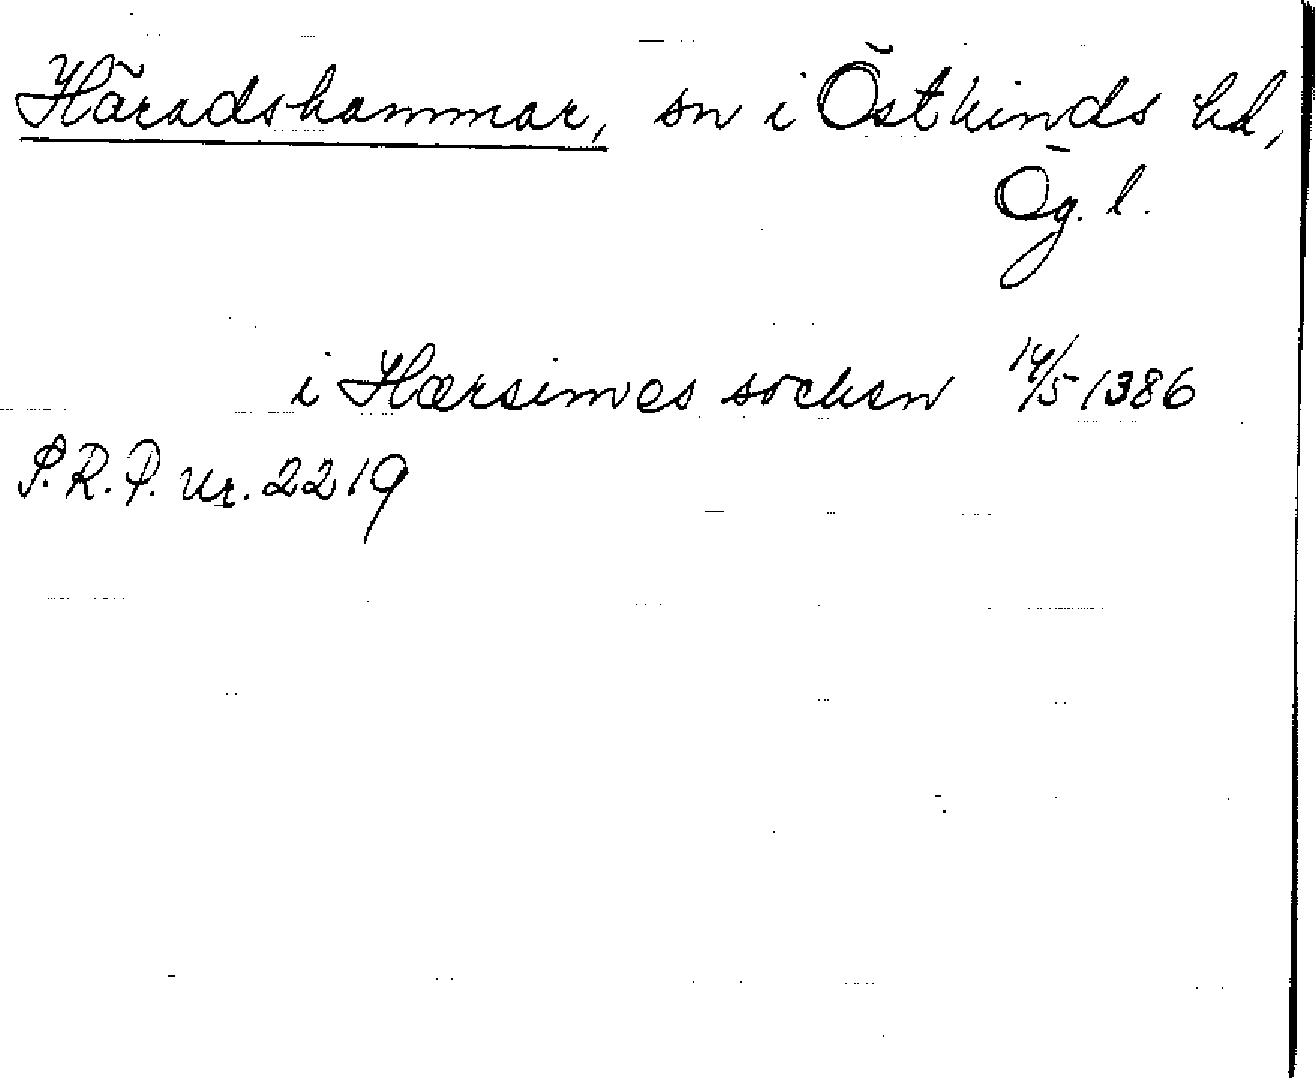 Häradshammar, sn i Östkinds hd,
Ög. l.
i Hærsimes socken 14/5 1386
S.R.P. nr. 2219